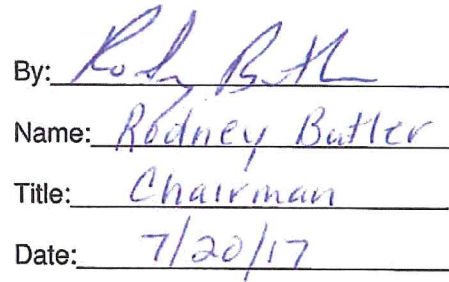 By: Rodney Butler
Name: Rodney Butler
Title: Chairman
Date: 7/20/17